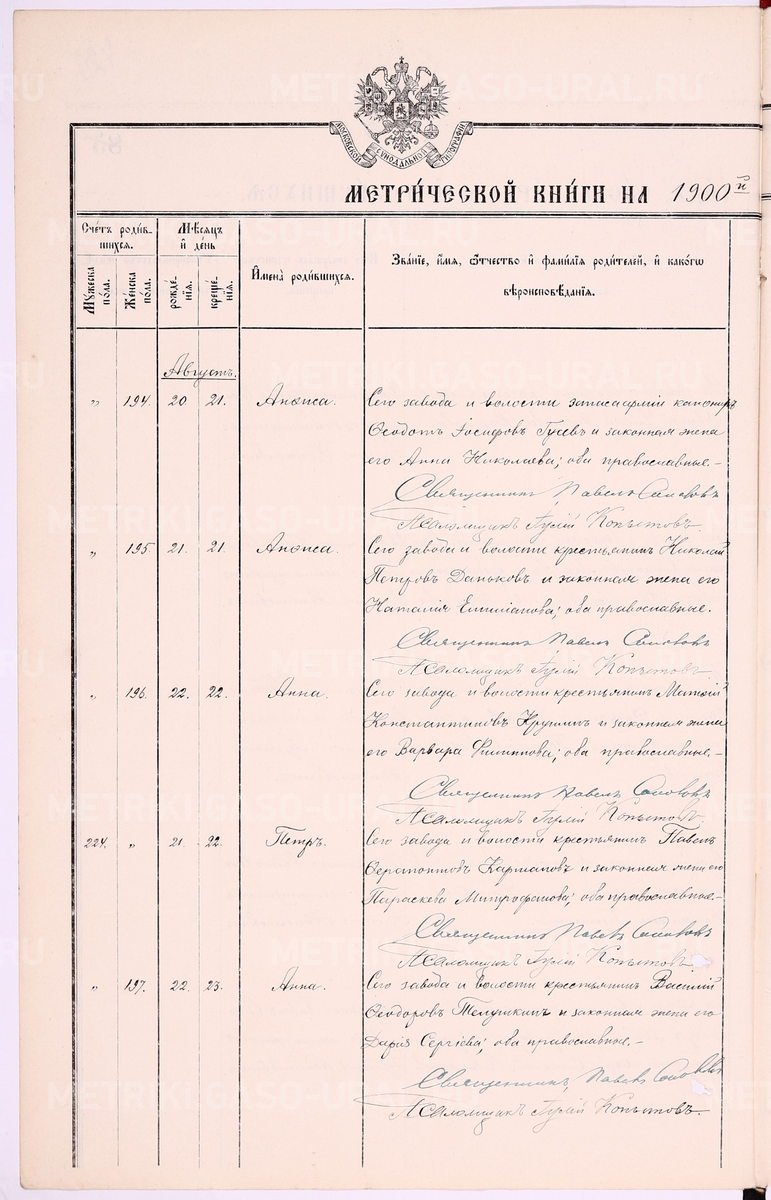 МОСКОВСКОЙ СѴНОДАЛЬНОЙ ТИПОГРАФІИ
МЕТРИ́ЧЕСКОЙ КНИ́ГИ НА 1900й
Сче́тъ роди́в-
шихсѧ.
Мѣ́сѧцъ
и҆ де́нь
И҆мена̀ роди́вшихсѧ.
Зва́нїе, и҆́мѧ, ѻ҆́тчество и҆ фами́лїѧ роди́телей, и҆ како́гѡ
вѣроисповѣ́данїѧ.
Мꙋ́жеска
по́ла.
Же́нска
по́ла.
рожде́-
нїѧ.
креще́-
нїѧ.
Августъ.
„ 194. 20 21. Анѳиса. Сего завода и волости запаса арміи канониръ
Ѳеодотъ Іосифовъ Гусевъ и законная жена
его Анна Николаева; оба православные.–
Священникъ Павелъ
Псаломщикъ Копытовъ
„ 195. 21. 21. Анѳиса. Сего завода и волости крестьянинъ Николай
Петровъ Даньковъ и законная жена его
Наталія Емиліанова; оба православные.
Священникъ Павелъ
Псаломщикъ Копытовъ
„ 196. 22. 22. Анна. Сего завода и волости крестьянинъ Матѳій
Константиновъ Крушинъ и законная жена
его Варвара Филиппова; оба православные.–
Священникъ Павелъ
Псаломщикъ Копытовъ
224. „ 21. 22. Петръ. Сего завода и волости крестьянинъ Павелъ
Ѳерапонтовъ Кармановъ и законная жена его
Параскева Митрофанова; оба православные.–
Священникъ Павелъ
Псаломщикъ Копытовъ
„ 197. 22. 23. Анна. Сего завода и волости крестьянинъ Василій
Ѳеодоровъ Телушкинъ и законная жена его
Дарія Сергіева; оба православные.–
Священникъ, Павелъ
Псаломщикъ Копытовъ.
METRIKI.GASO-URAL.RU